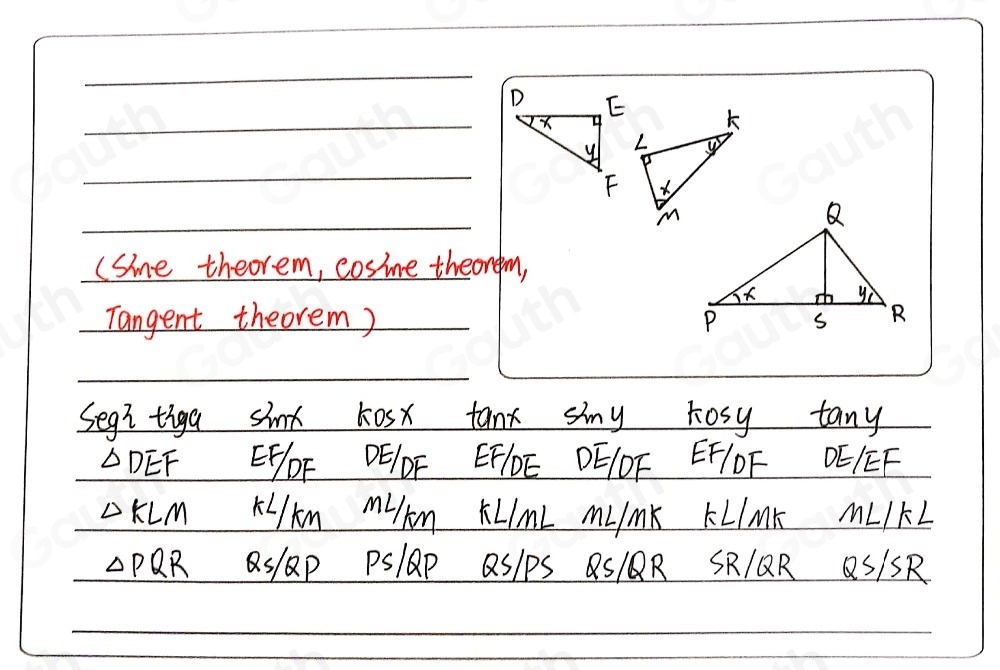 D
E
x
y
F
L
K
y
x
M
Q
x
y
P
S
R
(Sine theorem, cosine theorem,
Tangent theorem)
Segi tiga sinx kosx tanx siny kosy tany
△DEF EF/DF DE/DF EF/DE DE/DF EF/DF DE/EF
△KLM KL/KM ML/KM KL/ML ML/MK KL/MK ML/KL
△PQR QS/QP PS/QP QS/PS QS/QR SR/QR QS/SR
Gauth